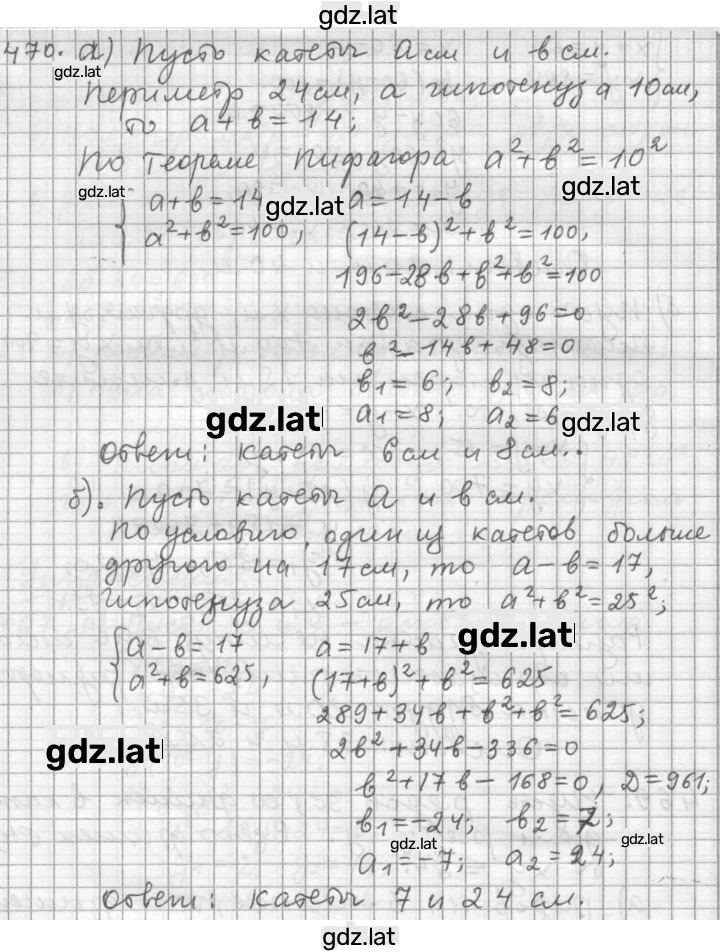 gdz.lat
470. а) Пусть катеты а см и в см.
gdz.lat
Периметр 24 см, а гипотенуза 10 см,
то а + в = 14;
По теореме Пифагора а² + в² = 10²
gdz.lat gdz.lat gdz.lat
{ а + в = 14 а = 14 - в
а² + в² = 100, (14 - в)² + в² = 100,
196 - 28в + в² + в² = 100
2в² - 28в + 96 = 0
в² - 14в + 48 = 0
в₁ = 6; в₂ = 8;
gdz.lat а₁ = 8; а₂ = 6 gdz.lat
Ответ: катеты 6 см и 8 см.
б). Пусть катеты а и в см.
По условию, один из катетов больше
другого на 17 см, то а - в = 17,
гипотенуза 25 см, то а² + в² = 25²;
{ а - в = 17 а = 17 + в gdz.lat
а² + в = 625, (17 + в)² + в² = 625
289 + 34в + в² + в² = 625;
gdz.lat 2в² + 34в - 336 = 0
в² + 17в - 168 = 0, D = 961;
в₁ = -24; в₂ = 7;
gdz.lat gdz.lat
а₁ = -7; а₂ = 24;
Ответ: катеты 7 и 24 см.
gdz.lat